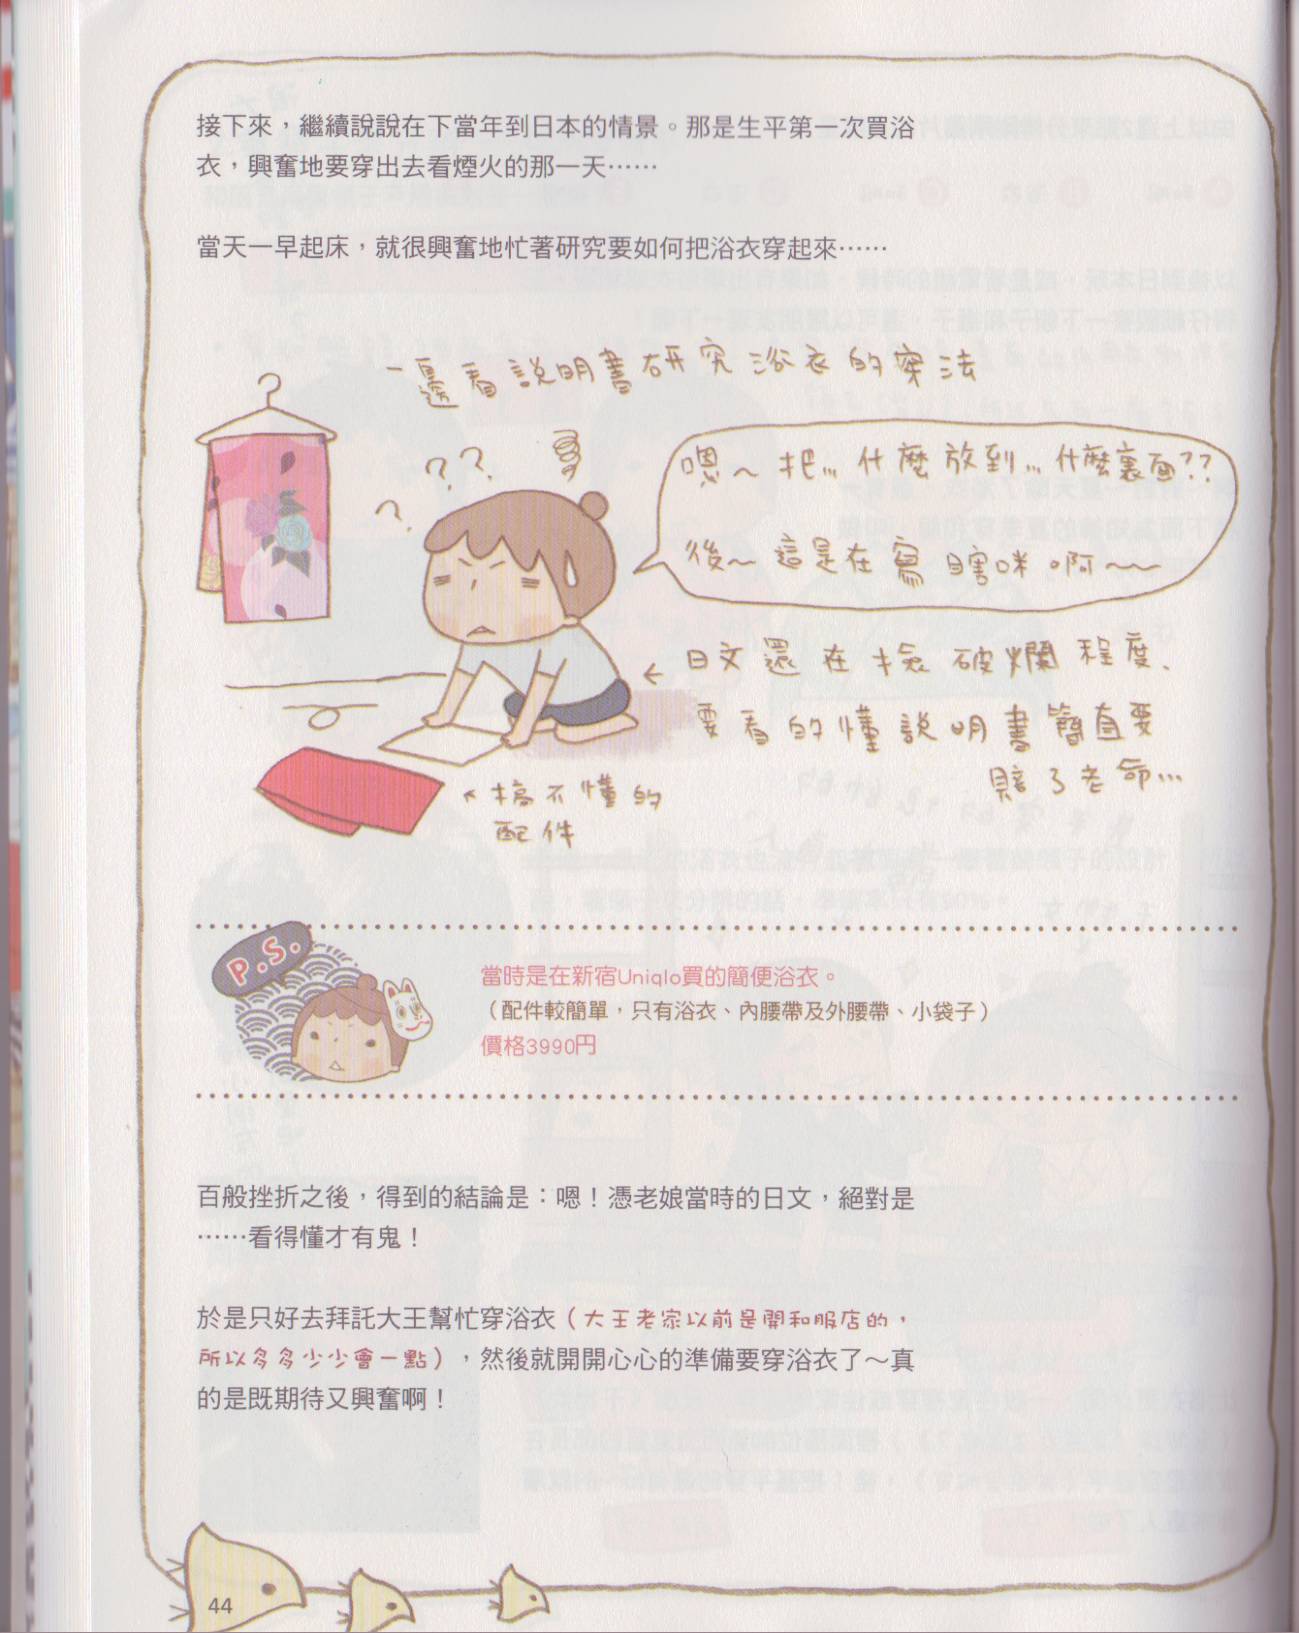 接下來，繼續說說在下當年到日本的情景。那是生平第一次買浴
衣，興奮地要穿出去看煙火的那一天……
當天一早起床，就很興奮地忙著研究要如何把浴衣穿起來……
一邊看說明書研究浴衣的穿法
??
?
嗯～把…什麼放到…什麼裏面??
後～這是在寫瞎咪啊～～
←日文還在撿破爛程度、
要看的懂說明書簡直要
賠了老命…
←搞不懂的
配件
P.S.
當時是在新宿Uniqlo買的簡便浴衣。
（配件較簡單，只有浴衣、內腰帶及外腰帶、小袋子）
價格3990円
百般挫折之後，得到的結論是：嗯！憑老娘當時的日文，絕對是
……看得懂才有鬼！
於是只好去拜託大王幫忙穿浴衣（大王老家以前是開和服店的，
所以多多少少會一點），然後就開開心心的準備要穿浴衣了～真
的是既期待又興奮啊！
44